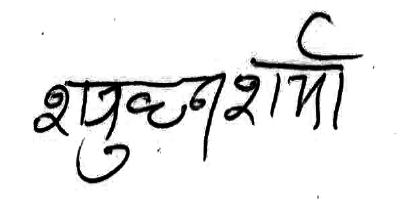 शत्रुघ्न शर्मा